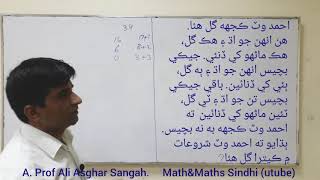 34
16 17+1
6 8+2
0 3+3
احمد وٽ ڪجهه گل هئا.
هن انهن جو اڌ ۽ هڪ گل،
هڪ ماڻهو کي ڏنئي. جيڪي
بچيس انهن جو اڌ ۽ ٻه گل،
ٻئي کي ڏنائين. باقي جيڪي
بچيس تن جو اڌ ۽ ٽي گل،
ٽئين ماڻهو کي ڏنائين ته
احمد وٽ ڪجهه به نه بچيس.
ٻڌايو ته احمد وٽ شروعات
۾ ڪيترا گل هئا؟
A. Prof Ali Asghar Sangah. Math&Maths Sindhi (utube)